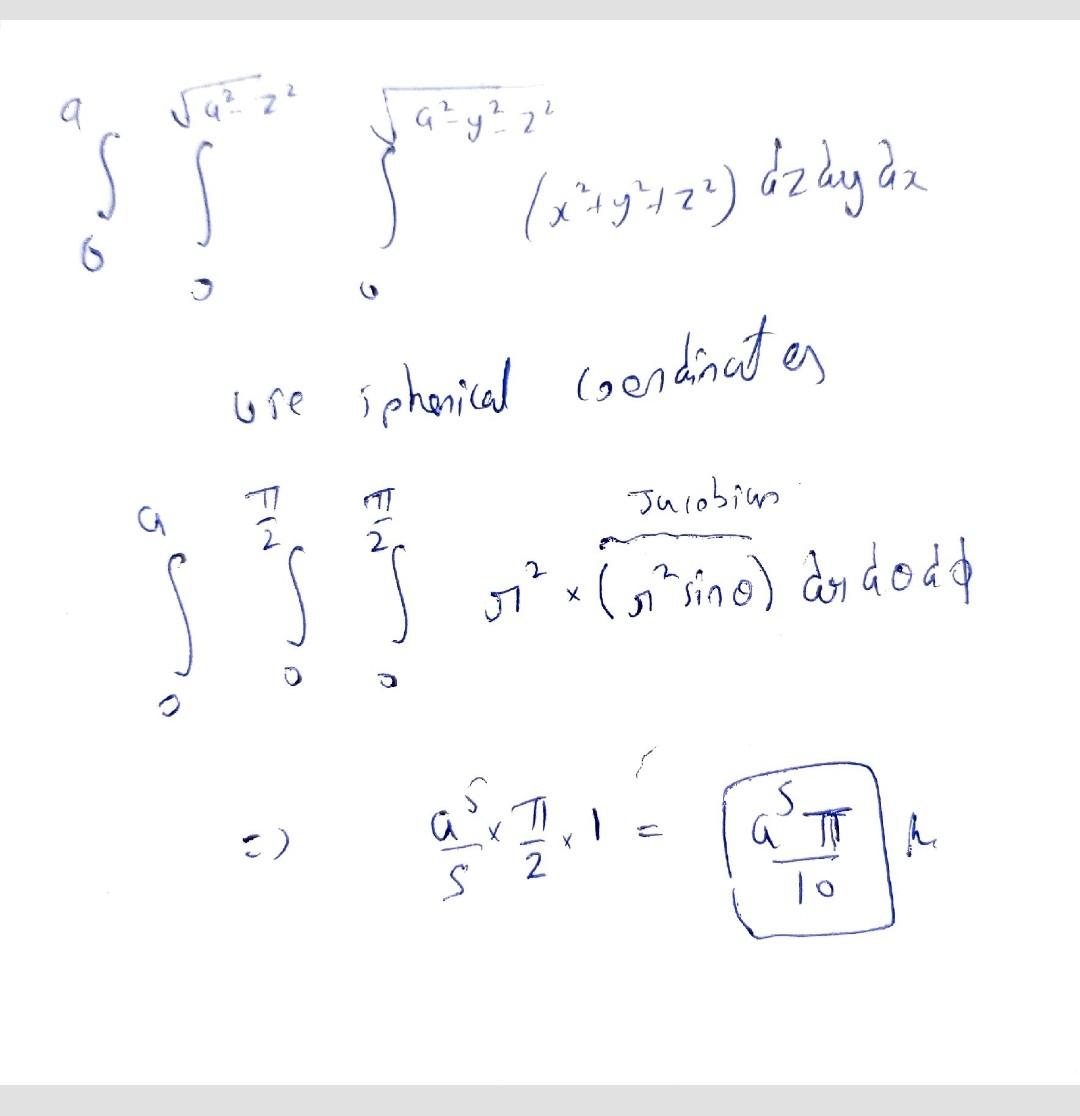 ∫₀ᵃ ∫₀^√(a²-z²) ∫₀^√(a²-y²-z²) (x²+y²+z²) dz dy dx
use spherical coordinates
Jacobian
∫₀ᵃ ∫₀^(π/2) ∫₀^(π/2) r² × (r² sinθ) dr dθ dϕ
=> a⁵/5 × π/2 × 1 = a⁵π/10